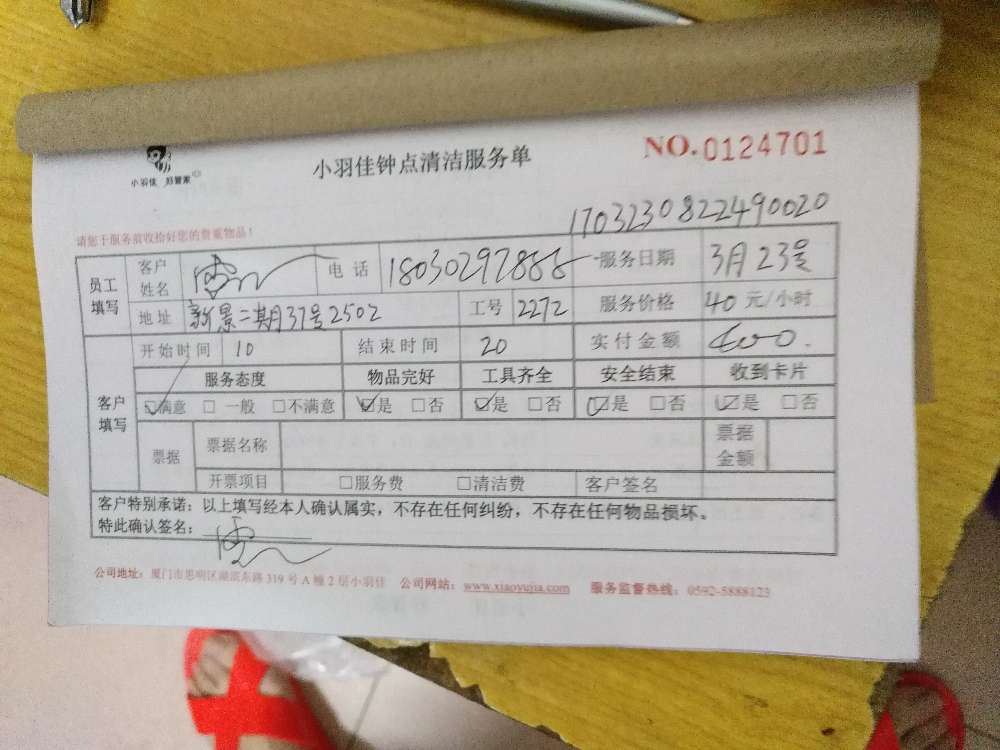 小羽佳 好管家
小羽佳钟点清洁服务单
NO.0124701
1703230822490020
请您于服务前收拾好您的贵重物品！
员工填写 客户姓名 电话 18030297888 服务日期 3月23号
地址 新景二期37号2502 工号 2272 服务价格 40 元/小时
客户填写 开始时间 10 结束时间 20 实付金额 400.
服务态度 物品完好 工具齐全 安全结束 收到卡片
☑满意 □一般 □不满意 ☑是 □否 ☑是 □否 ☑是 □否 ☑是 □否
票据 票据名称 票据金额
开票项目 □服务费 □清洁费 客户签名
客户特别承诺：以上填写经本人确认属实，不存在任何纠纷，不存在任何物品损坏。
特此确认签名：
公司地址：厦门市思明区湖滨东路 319 号 A 幢 2 层小羽佳 公司网站：www.xiaoyujia.com 服务监督热线：0592-5888123